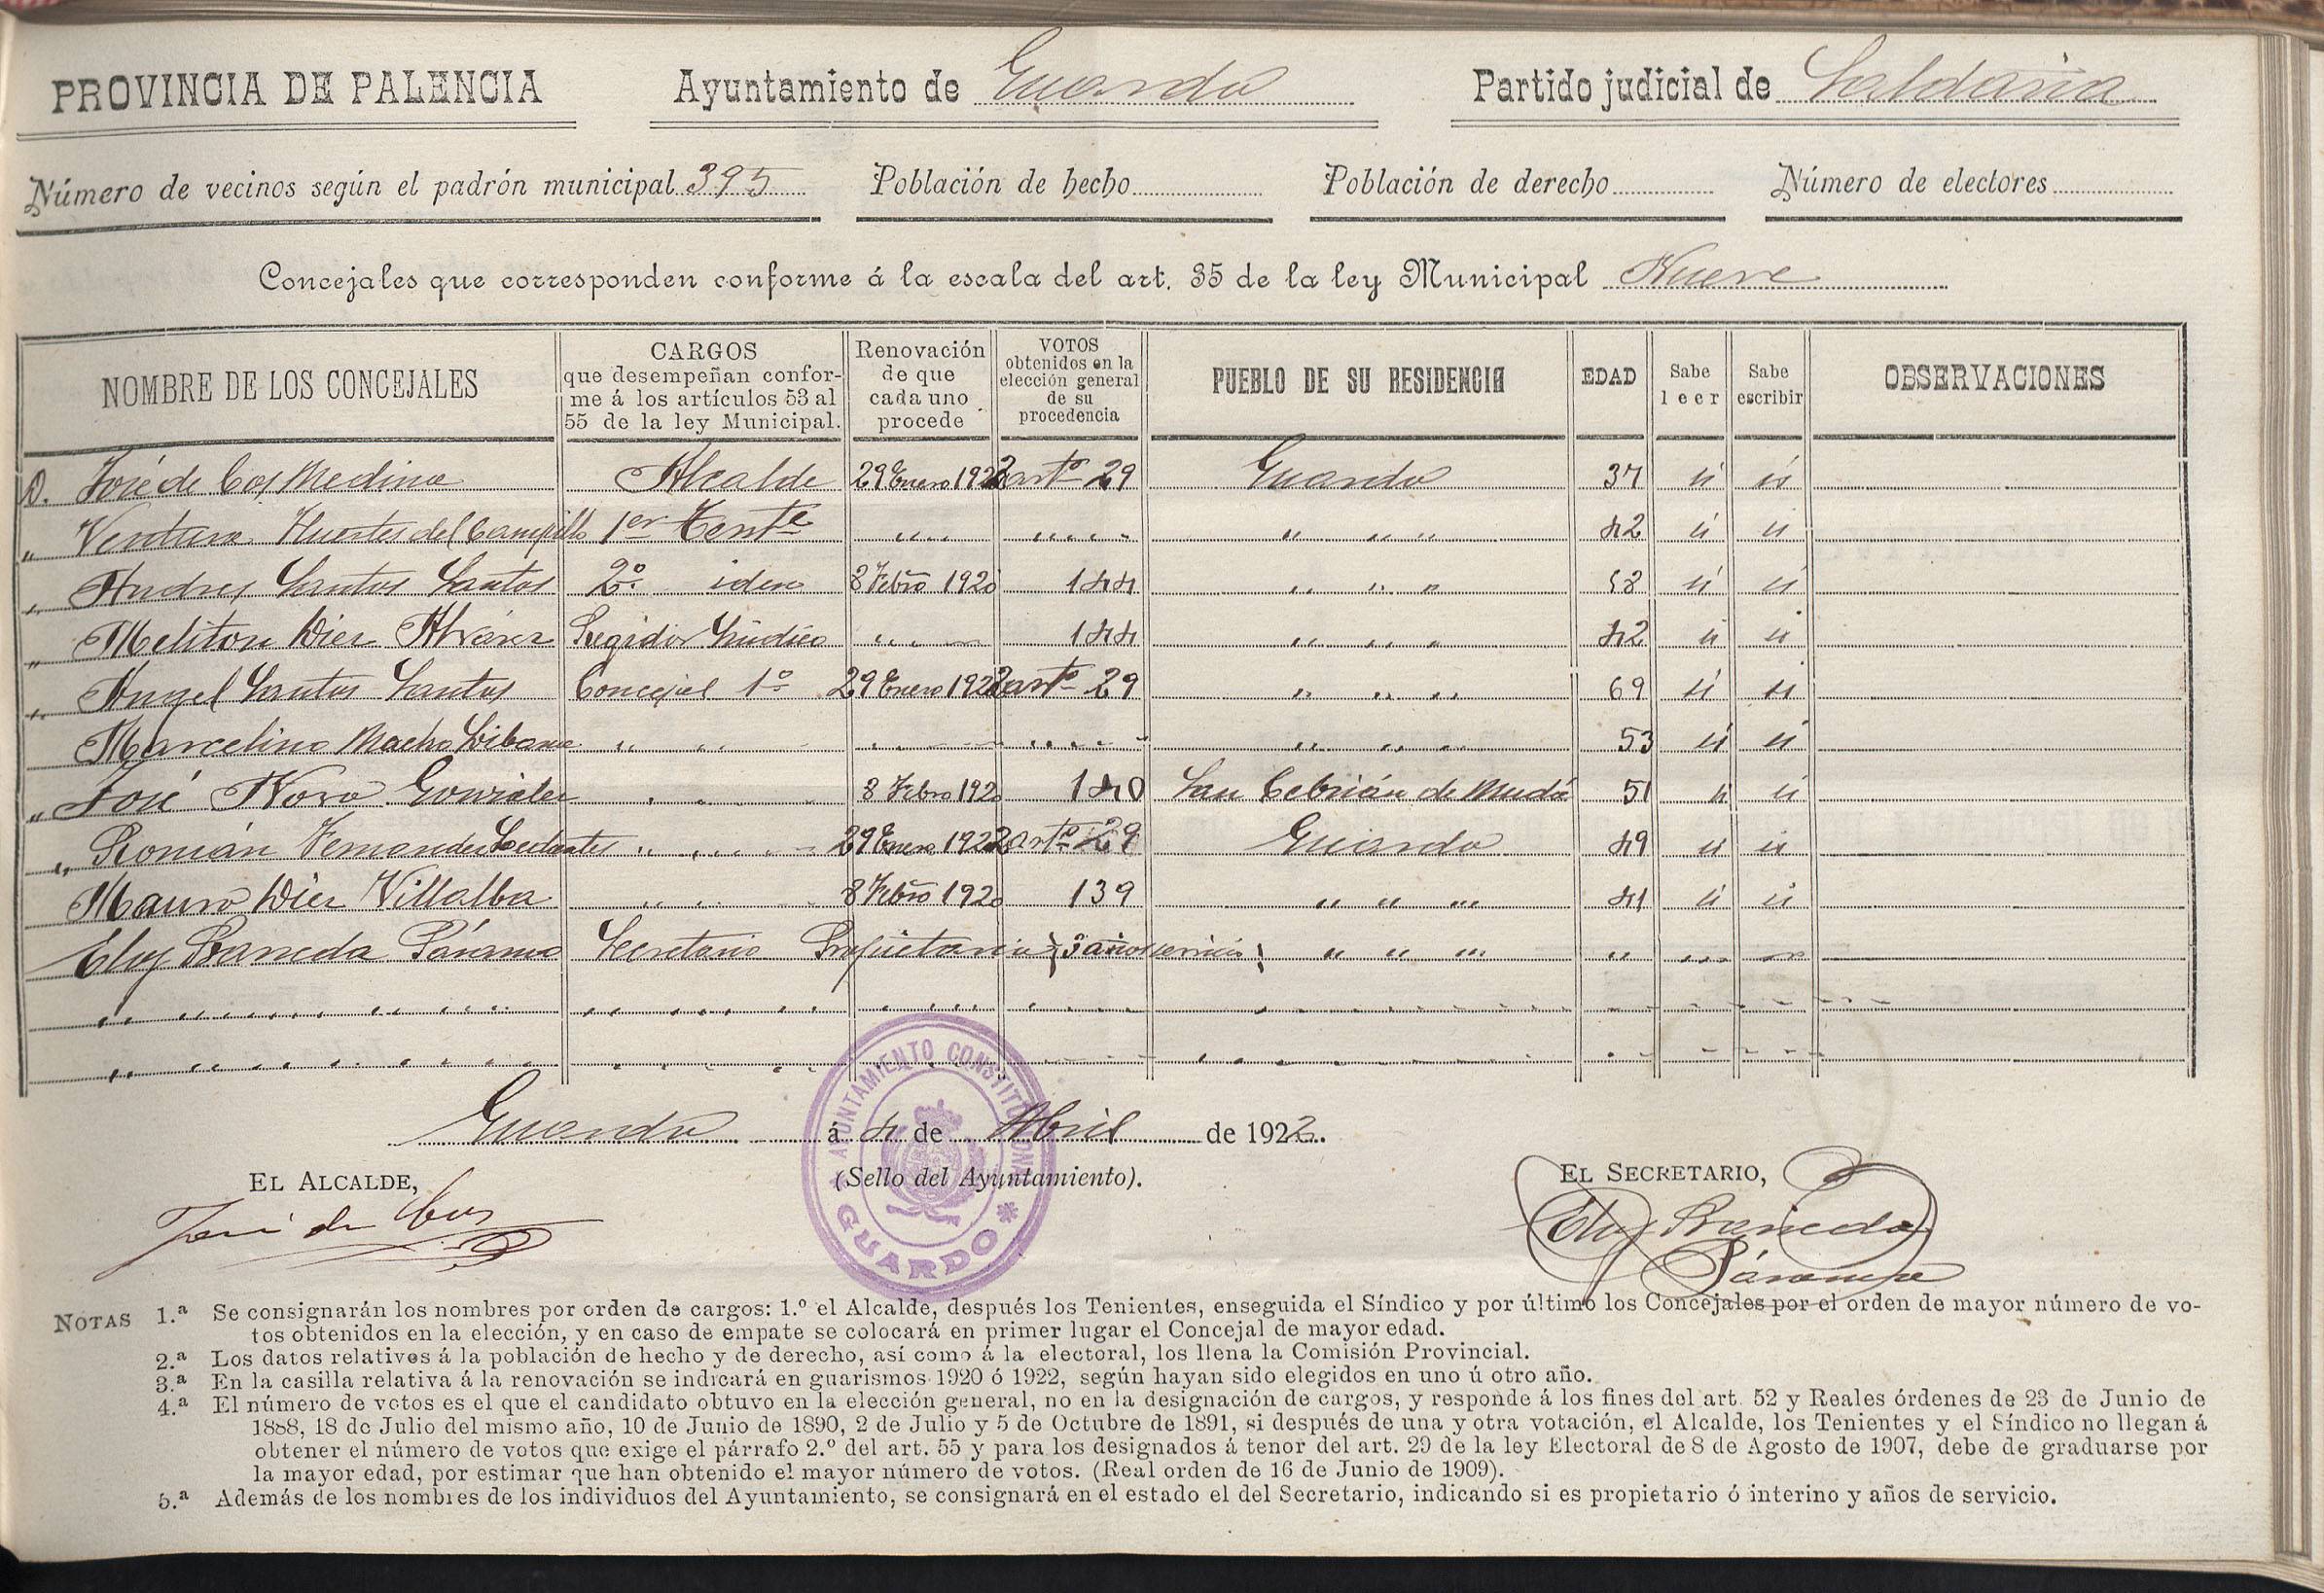 PROVINCIA DE PALENCIA Ayuntamiento de Guardo Partido judicial de Saldaña
Número de vecinos según el padrón municipal 395 Población de hecho Población de derecho Número de electores
Concejales que corresponden conforme á la escala del art. 35 de la ley Municipal Nueve
NOMBRE DE LOS CONCEJALES CARGOS que desempeñan conforme á los artículos 53 al 55 de la ley Municipal. Renovación de que cada uno procede VOTOS obtenidos en la elección general de su procedencia PUEBLO DE SU RESIDENCIA EDAD Sabe leer Sabe escribir OBSERVACIONES
D. José de Cos Medina Alcalde 29 Enero 1922 artº 29 Guardo 37 si si
" Ventura Huertes del Campillo 1er Tente " " " " " " " " " " 42 si si
" Andres Santos Santos 2º idem 8 Febro 1920 144 " " " 58 si si
" Meliton Diez Alvarez Regidor Síndico " " " 144 " " " 42 si si
" Angel Santos Santos Concejal 1º 29 Enero 1922 artº 29 " " " 69 si si
Marcelino Macho " " " " " " " " " " " 53 si si
" José Novo Gonzalez " " 8 Febro 1920 140 San Cebrián de Mudá 51 si si
" Román Fernandez " " " 29 Enero 1922 artº 29 Guardo 49 si si
Mauro Diez Villalba " " 8 Febro 1920 139 " " " 41 si si
Eloy Baneda Páramo Secretario Propietario 3 años servicio " " " " " "
Guardo á 4 de Abril de 1922.
AYUNTAMIENTO CONSTITUCIONAL
GUARDO
EL ALCALDE, (Sello del Ayuntamiento). EL SECRETARIO,
José de Cos Eloy Baneda
Páramo
NOTAS 1.ª Se consignarán los nombres por orden de cargos: 1.º el Alcalde, después los Tenientes, enseguida el Síndico y por último los Concejales por el orden de mayor número de vo-
tos obtenidos en la elección, y en caso de empate se colocará en primer lugar el Concejal de mayor edad.
2.ª Los datos relativos á la población de hecho y de derecho, así como á la electoral, los llena la Comisión Provincial.
3.ª En la casilla relativa á la renovación se indicará en guarismos 1920 ó 1922, según hayan sido elegidos en uno ú otro año.
4.ª El número de votos es el que el candidato obtuvo en la elección general, no en la designación de cargos, y responde á los fines del art. 52 y Reales órdenes de 23 de Junio de
1888, 18 de Julio del mismo año, 10 de Junio de 1890, 2 de Julio y 5 de Octubre de 1891, si después de una y otra votación, el Alcalde, los Tenientes y el Síndico no llegan á
obtener el número de votos que exige el párrafo 2.º del art. 55 y para los designados á tenor del art. 29 de la ley Electoral de 8 de Agosto de 1907, debe de graduarse por
la mayor edad, por estimar que han obtenido el mayor número de votos. (Real orden de 16 de Junio de 1909).
5.ª Además de los nombres de los individuos del Ayuntamiento, se consignará en el estado el del Secretario, indicando si es propietario ó interino y años de servicio.